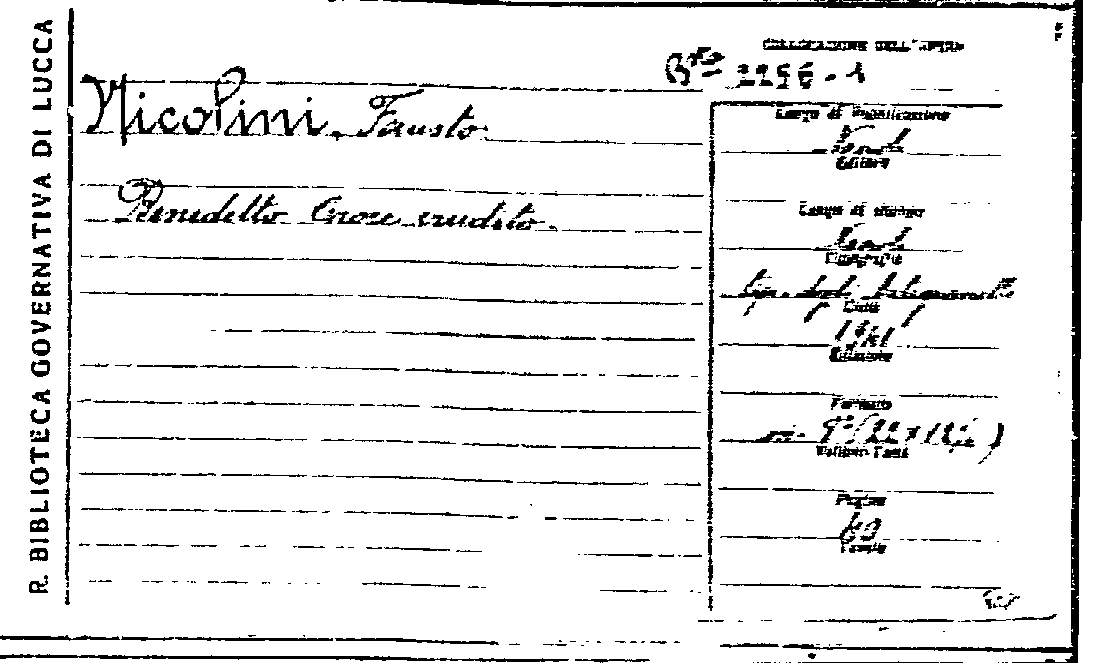 R. BIBLIOTECA GOVERNATIVA DI LUCCA
COLLOCAZIONE DELL'OPERA
Bta 2256-1
Nicolini Fausto
Benedetto Croce erudito.
Luogo di Pubblicazione
Editore
Luogo di stampa
Tipografia
tip. degli
Data
1941
Edizione
Formato
in-8° (
Volumi Tomi
Pagine
60
Tavole